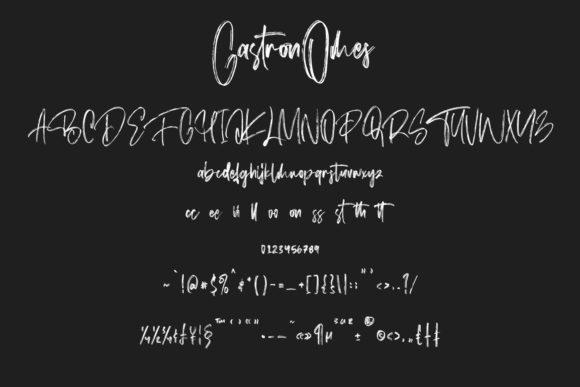 GastronOmes
ABCDEFGHIJKLMNOPQRSTUVWXYZ
abcdefghijklmnopqrstuvwxyz
cc ee ii ll oo on ss st th tt
0123456789
~`!@#$%^&*()-=_+[]{}\|:;"'<>,.?/